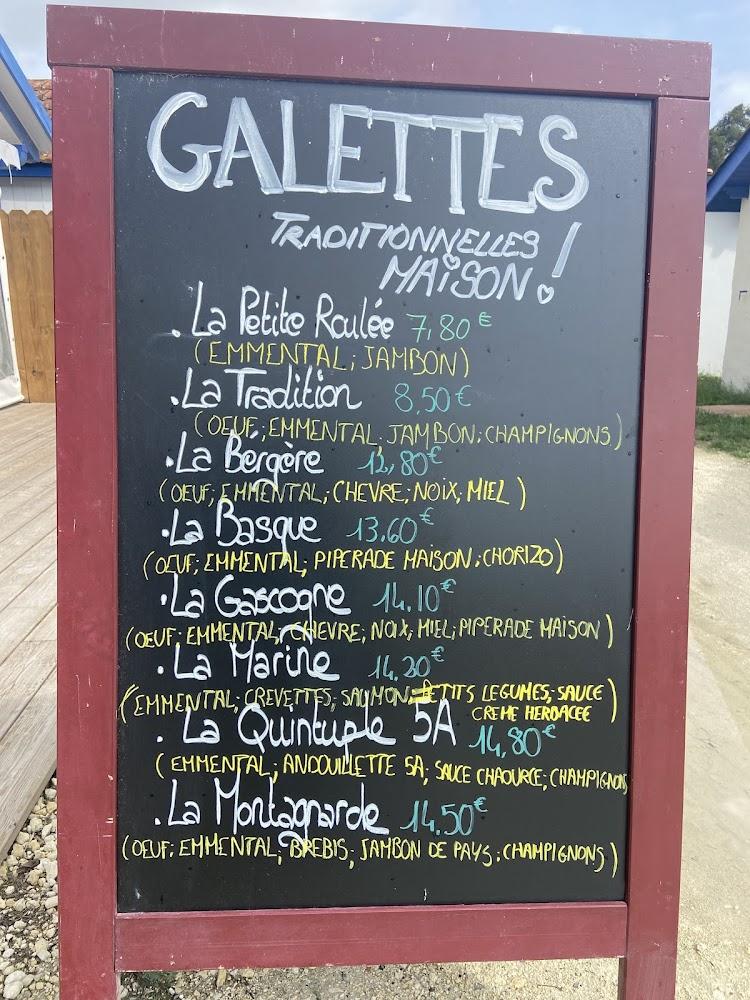 GALETTES
TRADITIONNELLES
MAISON!
. La Petite Roulée 7,80€
(EMMENTAL; JAMBON)
. La Tradition 8,50€
(OEUF; EMMENTAL; JAMBON; CHAMPIGNONS)
. La Bergère 12,80€
(OEUF; EMMENTAL; CHEVRE; NOIX; MIEL)
. La Basque 13.60€
(OEUF; EMMENTAL; PIPERADE MAISON; CHORIZO)
. La Gascogne 14.10€
(OEUF; EMMENTAL; CHEVRE; NOIX; MIEL; PIPERADE MAISON)
. La Marine 14.20€
(EMMENTAL; CREVETTES; SAUMON; PETITS LEGUMES, SAUCE
CREME HERBACEE)
. La Quintuple 5A 14,80€
(EMMENTAL; ANDOUILLETTE 5A; SAUCE CHAOURCE; CHAMPIGNONS
. La Montagnarde 14.50€
(OEUF; EMMENTAL; BREBIS; JAMBON DE PAYS; CHAMPIGNONS)